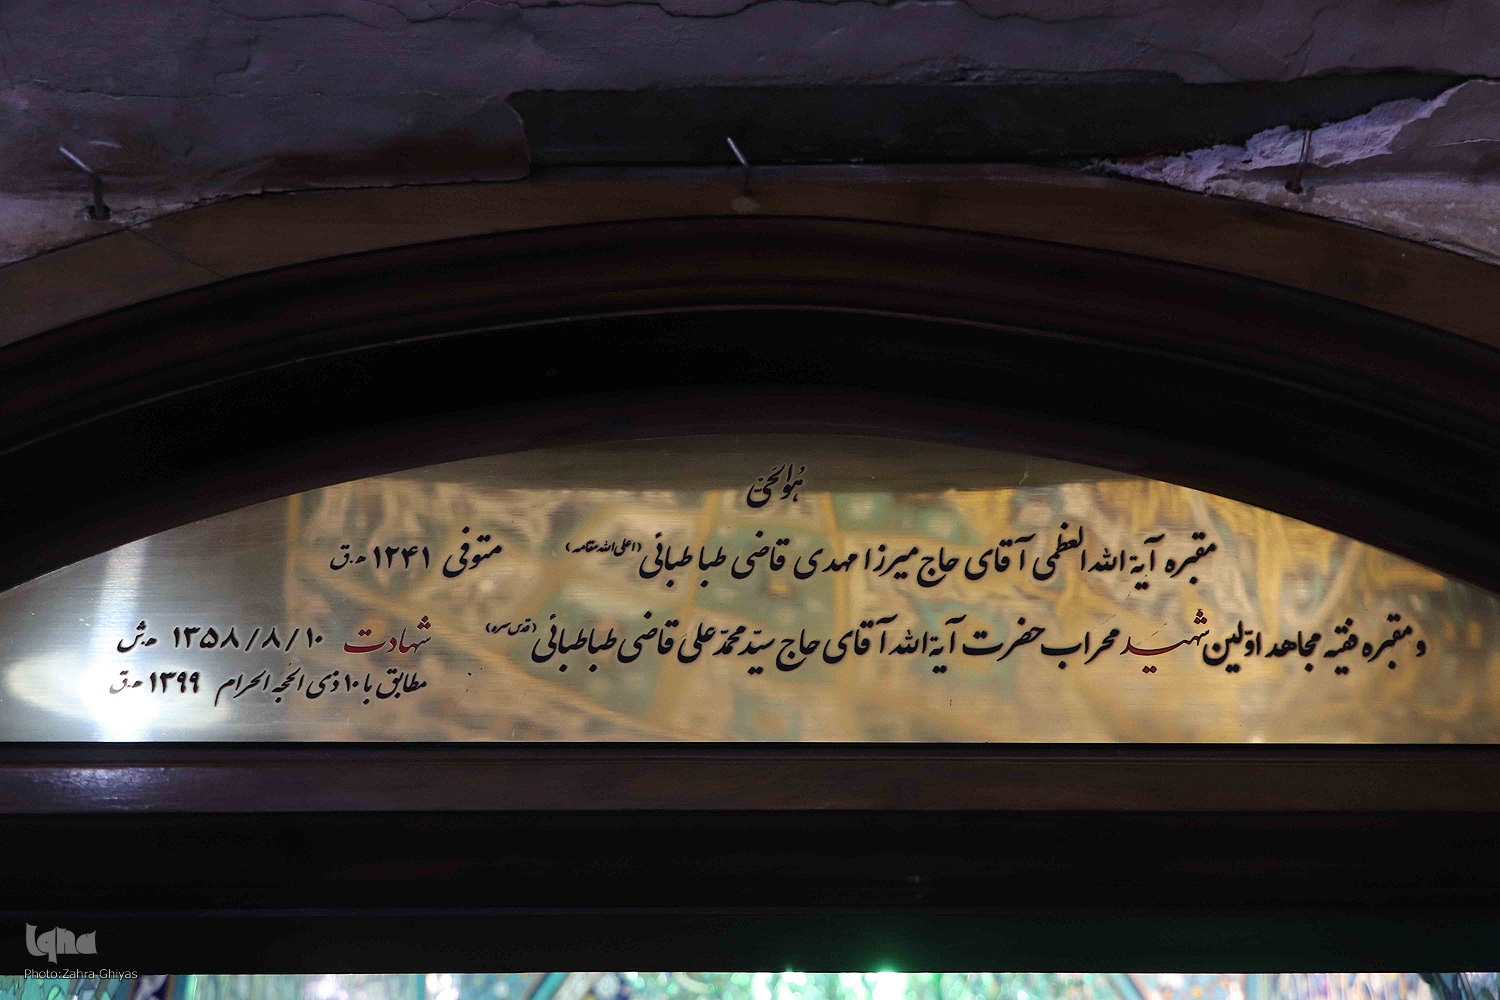 هُوَ الحَیّ
مقبره آیة الله العظمی آقای حاج میرزا مهدی قاضی طباطبائی (اعلی الله مقامه) متوفی ۱۲۴۱ ه‍.ق
و مقبره فقیه مجاهد اوّلین شهید محراب حضرت آیة الله آقای حاج سیّد محمّد علی قاضی طباطبائی (قدس سره) شهادت ۱۳۵۸/۸/۱۰ ه‍.ش
مطابق با ۱۰ ذی الحجه الحرام ۱۳۹۹ ه‍.ق
iqna
Photo:Zahra Ghiyas